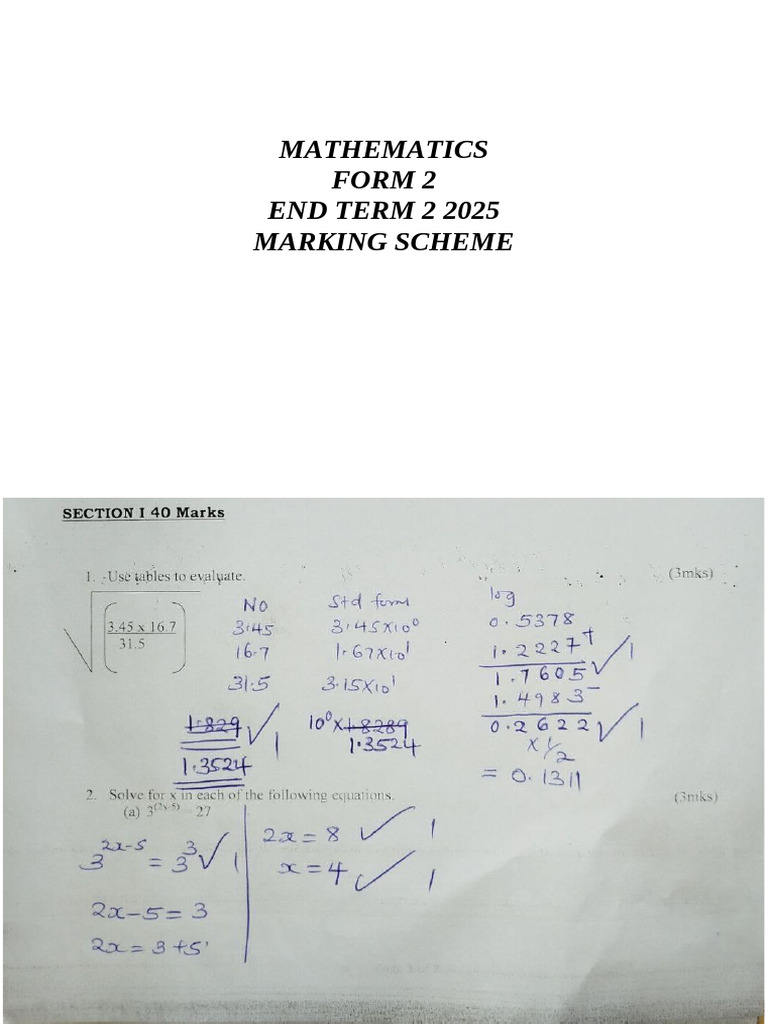 MATHEMATICS
FORM 2
END TERM 2 2025
MARKING SCHEME
SECTION I 40 Marks
1. Use tables to evaluate. (3mks)
√(3.45 x 16.7 / 31.5)
No Std form log
3.45 3.45×10⁰ 0.5378
16.7 1.67×10¹ 1.2227 +
1.7605 ✓ 1
31.5 3.15×10¹ 1.4983 −
0.2622 ✓ 1
× 1/2
= 0.1311
1.829 ✓ 1 10⁰× 1.8289
1.3524 1.3524
2. Solve for x in each of the following equations. (3mks)
(a) 3^(2x-5) = 27
3^2x-5 = 3^3 ✓ 1
2x-5 = 3
2x = 3+5
2x = 8 ✓ 1
x = 4 ✓ 1